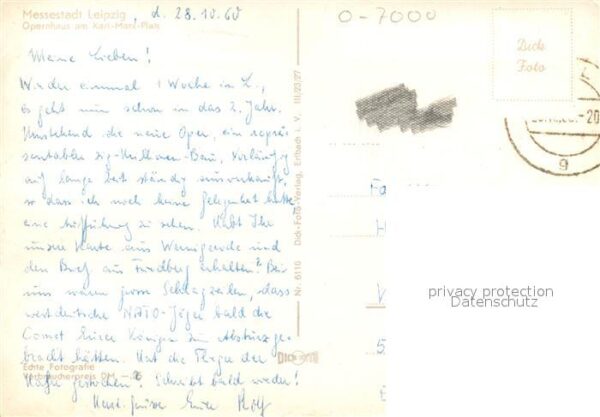 Messestadt Leipzig, d. 28.10.60
Opernhaus am Karl-Marx-Platz
Meine Lieben!
Wieder einmal 1 Woche in L.,
es geht nun schon in das 2. Jahr.
Umstehend die neue Oper, ein reprä-
sentabler zig-Millionen-Bau, vorläufig
auf lange Zeit ständig ausverkauft,
so dass ich noch keine Gelegenheit hatte
eine Aufführung zu sehen. Habt Ihr
unsere Karte aus Wernigerode und
den Brief aus erhalten? Bei
uns waren grosse Schlagzeilen, dass
westdeutsche NATO-Jäger bald die
Comet Eurer Königin zum Absturz ge-
bracht hätten. Hat die der
Schreibt bald wieder!
Herzl. Grüsse Euer Rolf
Echte Fotografie
Verbraucherpreis DM
Nr. 6110 Dick-Foto-Verlag, Erlbach i. V. III/23/27
DICK FOTO
0-7000
Dick
Foto
-20
9
Fa
H
V
5
privacy protection
Datenschutz